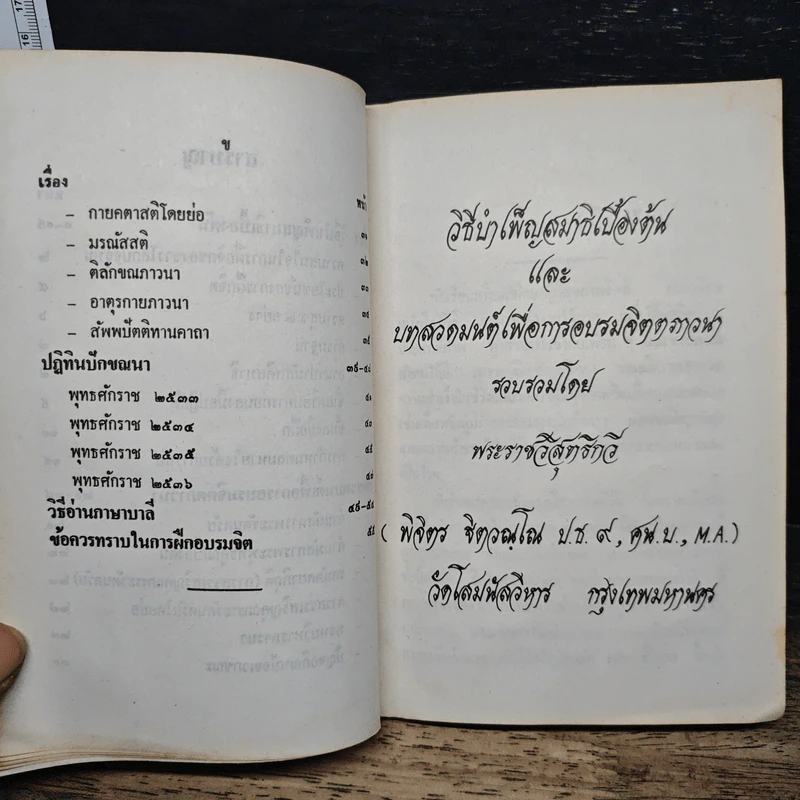 ข
เรื่อง
หน้า
– กายคตาสติโดยย่อ
– มรณัสสติ ๓๒
– ติลักขณภาวนา ๓๓
– อาตุรกายภาวนา ๓๔
– สัพพปัตติทานคาถา ๓๕
ปฏิทินปักขณนา
พุทธศักราช ๒๕๓๓
พุทธศักราช ๒๕๓๔
พุทธศักราช ๒๕๓๕
พุทธศักราช ๒๕๓๖
วิธีอ่านภาษาบาลี
ข้อควรทราบในการฝึกอบรมจิต
วิธีบำเพ็ญสมาธิเบื้องต้น
และ
บทสวดมนต์เพื่อการอบรมจิตตภาวนา
รวบรวมโดย
พระราชวิสุทธิกวี
( พิจิตร ฐิตวณฺโณ ป.ธ. ๙, ศน.บ., M.A.)
วัดโสมนัสวิหาร กรุงเทพมหานคร
16
17